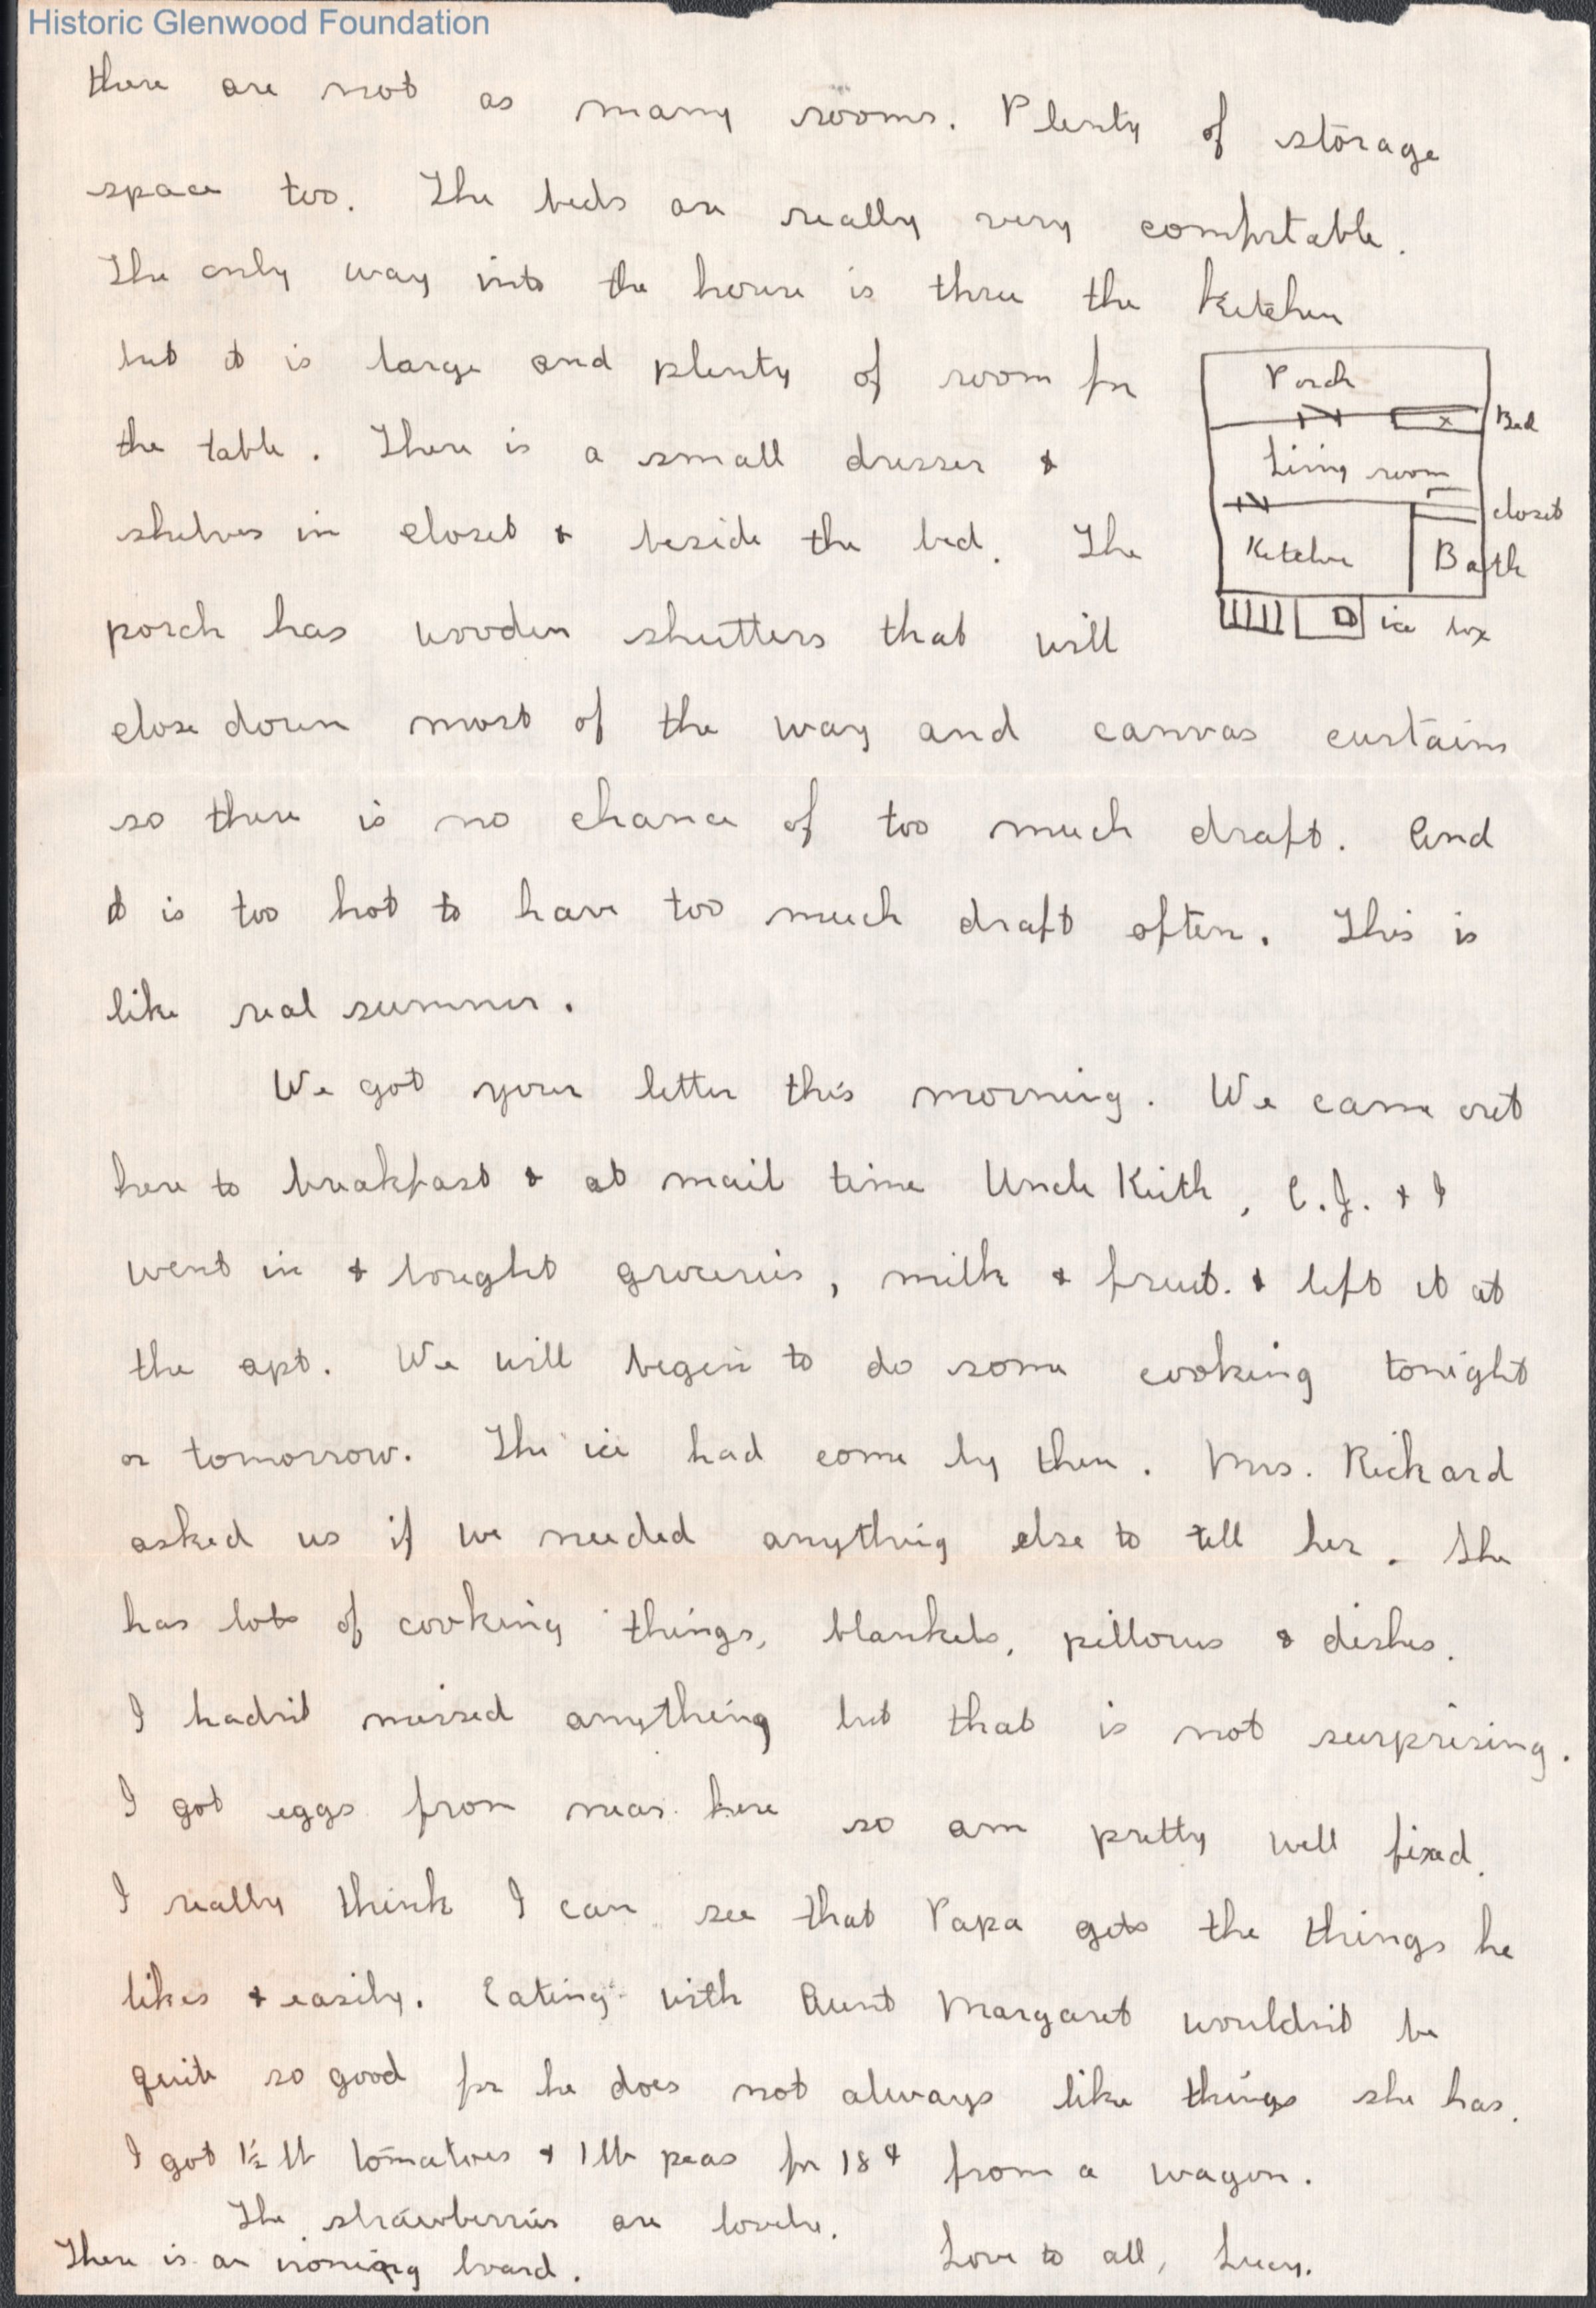 Historic Glenwood Foundation
there are not as many rooms. Plenty of storage
space too. The beds are really very comfortable.
The only way into the house is thru the kitchen
but it is large and plenty of room for
the table. There is a small dresser &
shelves in closet & beside the bed. The
porch has wooden shutters that will
Porch
Bed
x
Living room
closet
Kitchen
Bath
ice box
close down most of the way and canvas curtains
so there is no chance of too much draft. And
it is too hot to have too much draft often. This is
like real summer.
We got your letter this morning. We came out
here to breakfast & at mail time Uncle Keith, C.J. & I
went in & bought groceries, milk & fruit. & left it at
the apt. We will begin to do some cooking tonight
or tomorrow. The ice had come by then. Mrs. Rickard
asked us if we needed anything else to tell her. She
has lots of cooking things, blankets, pillows & dishes.
I hadn't missed anything but that is not surprising.
I got eggs from near here so am pretty well fixed.
I really think I can see that Papa gets the things he
likes & easily. Eating with Aunt Margaret wouldn't be
quite so good for he does not always like things she has.
I got 1½ lb tomatoes & 1 lb peas for 18¢ from a wagon.
The strawberries are lovely.
There is an ironing board.
Love to all, Lucy.